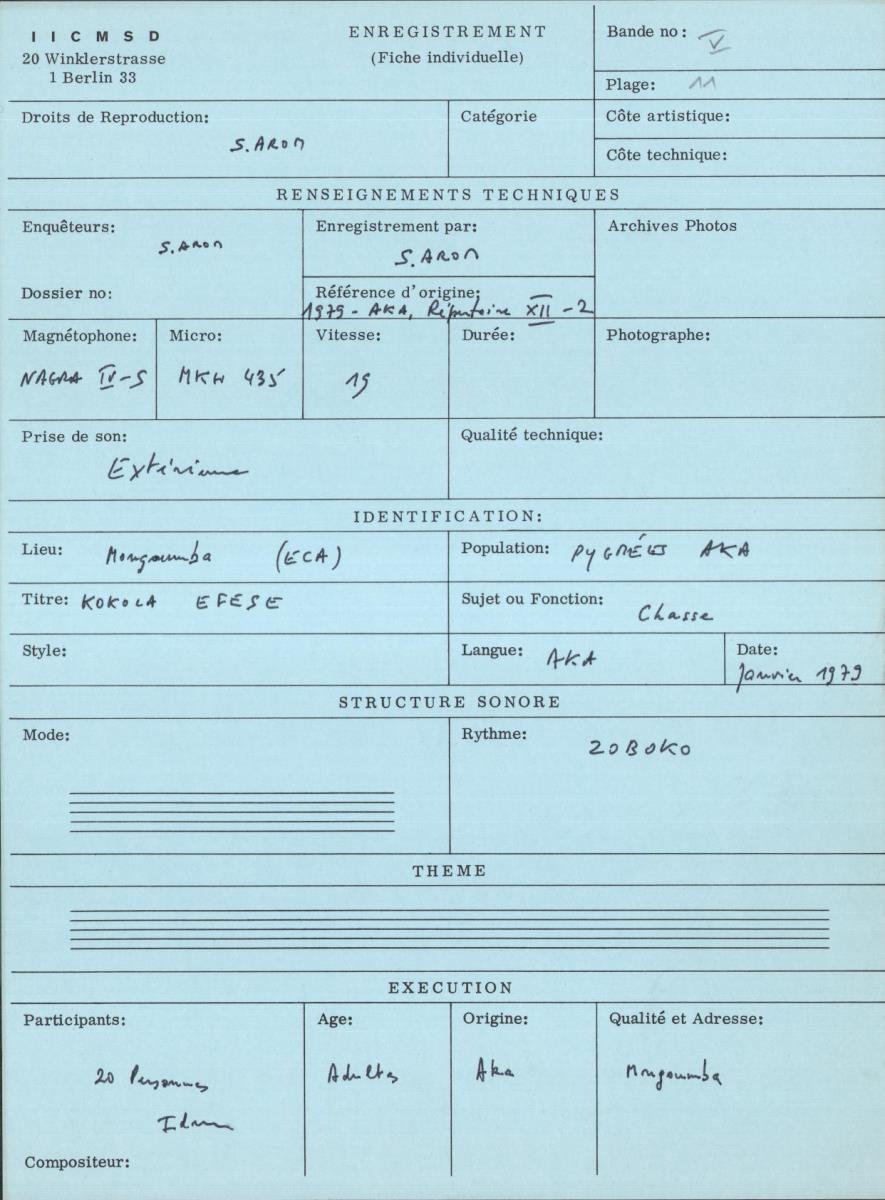 I I C M S D
20 Winklerstrasse
1 Berlin 33
ENREGISTREMENT
(Fiche individuelle)
Bande no: V
Plage: 11
Droits de Reproduction:
S. AROM
Catégorie
Côte artistique:
Côte technique:
RENSEIGNEMENTS TECHNIQUES
Enquêteurs:
S. AROM
Dossier no:
Enregistrement par:
S. AROM
Référence d'origine:
1979 - AKA, Répertoire XII - 2
Archives Photos
Magnétophone:
NAGRA IV-S
Micro:
MKH 435
Vitesse:
19
Durée:
Photographe:
Prise de son:
Extérieure
Qualité technique:
IDENTIFICATION:
Lieu: Mongoumba (ECA)
Population: PYGMÉES AKA
Titre: KOKOLA EFESE
Sujet ou Fonction:
Chasse
Style:
Langue: AKA
Date:
Janvier 1979
STRUCTURE SONORE
Mode:
Rythme:
ZOBOKO
THEME
EXECUTION
Participants:
20 Personnes
Idem
Age:
Adultes
Origine:
Aka
Qualité et Adresse:
Mongoumba
Compositeur: